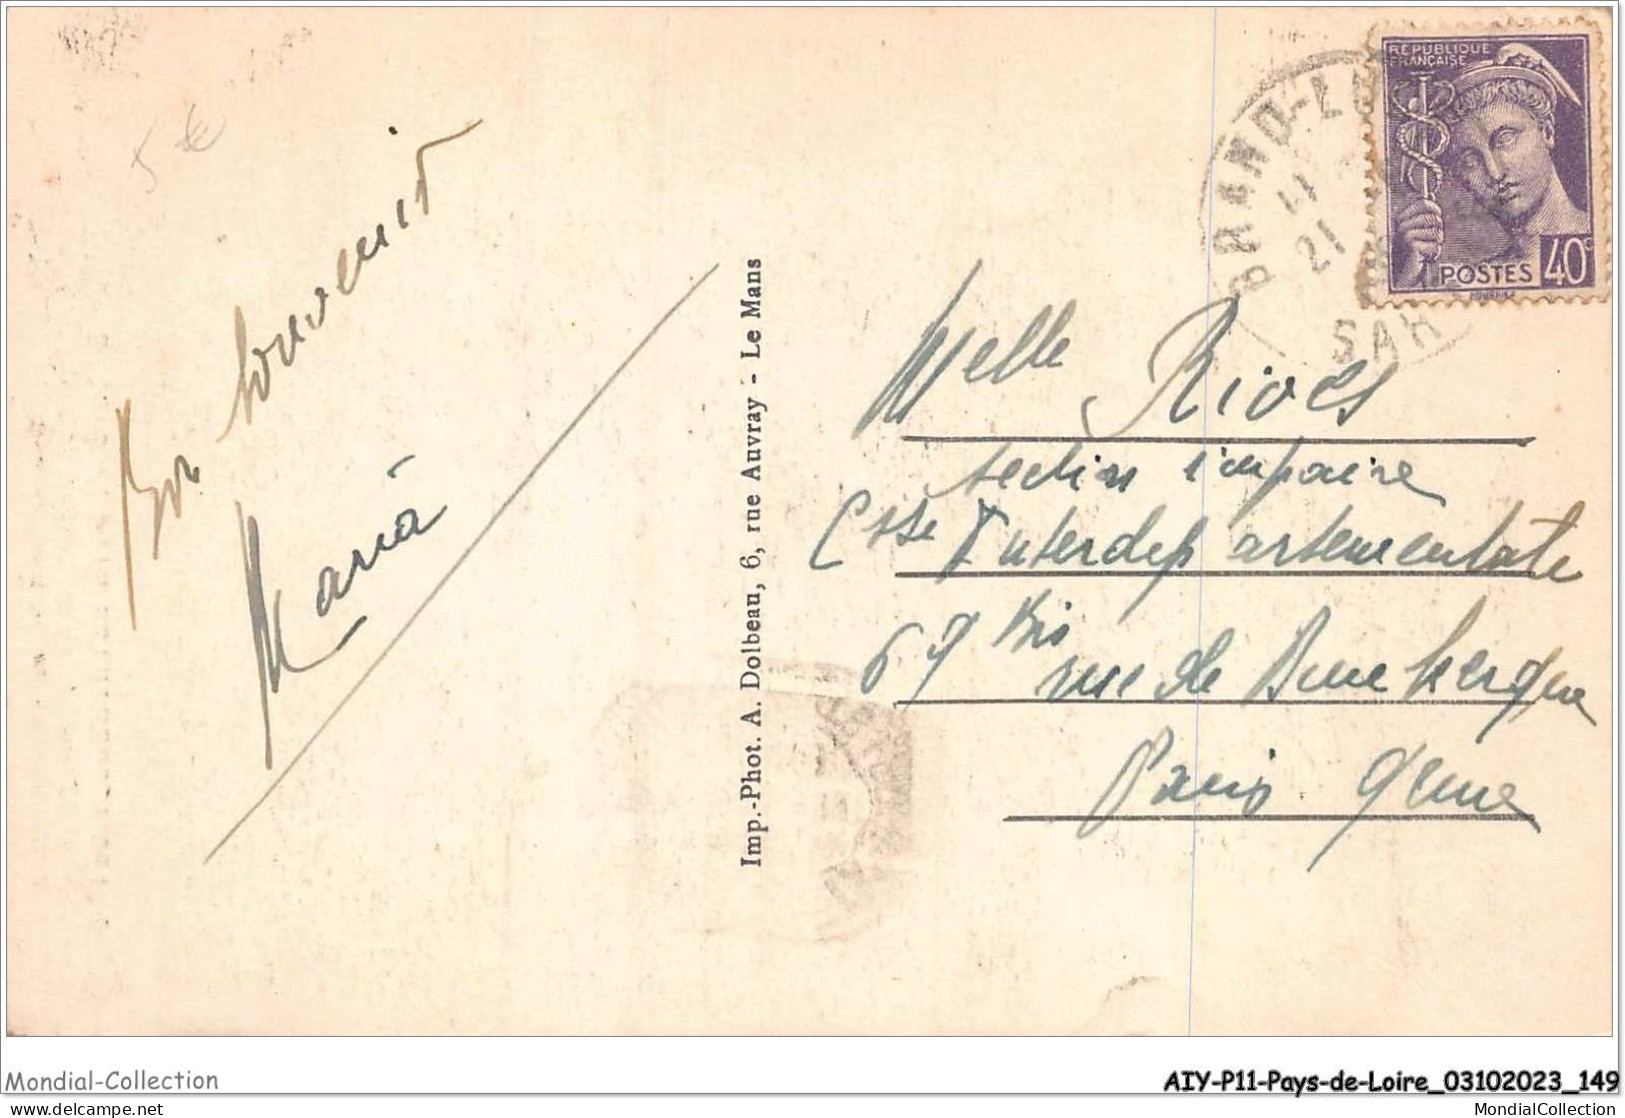 5 €
Bon souvenir
Maria
Imp.-Phot. A. Dolbeau, 6, rue Auvray - Le Mans
RÉPUBLIQUE
FRANÇAISE
POSTES 40c
GRAND-LU
11
21
SAR
Melle Rives
section impaire
Csse Interdepartementale
67 bis rue de Dunkerque
Paris 9eme
Mondial-Collection
AIY-P11-Pays-de-Loire_03102023_149
delcampe.net
MondialCollection